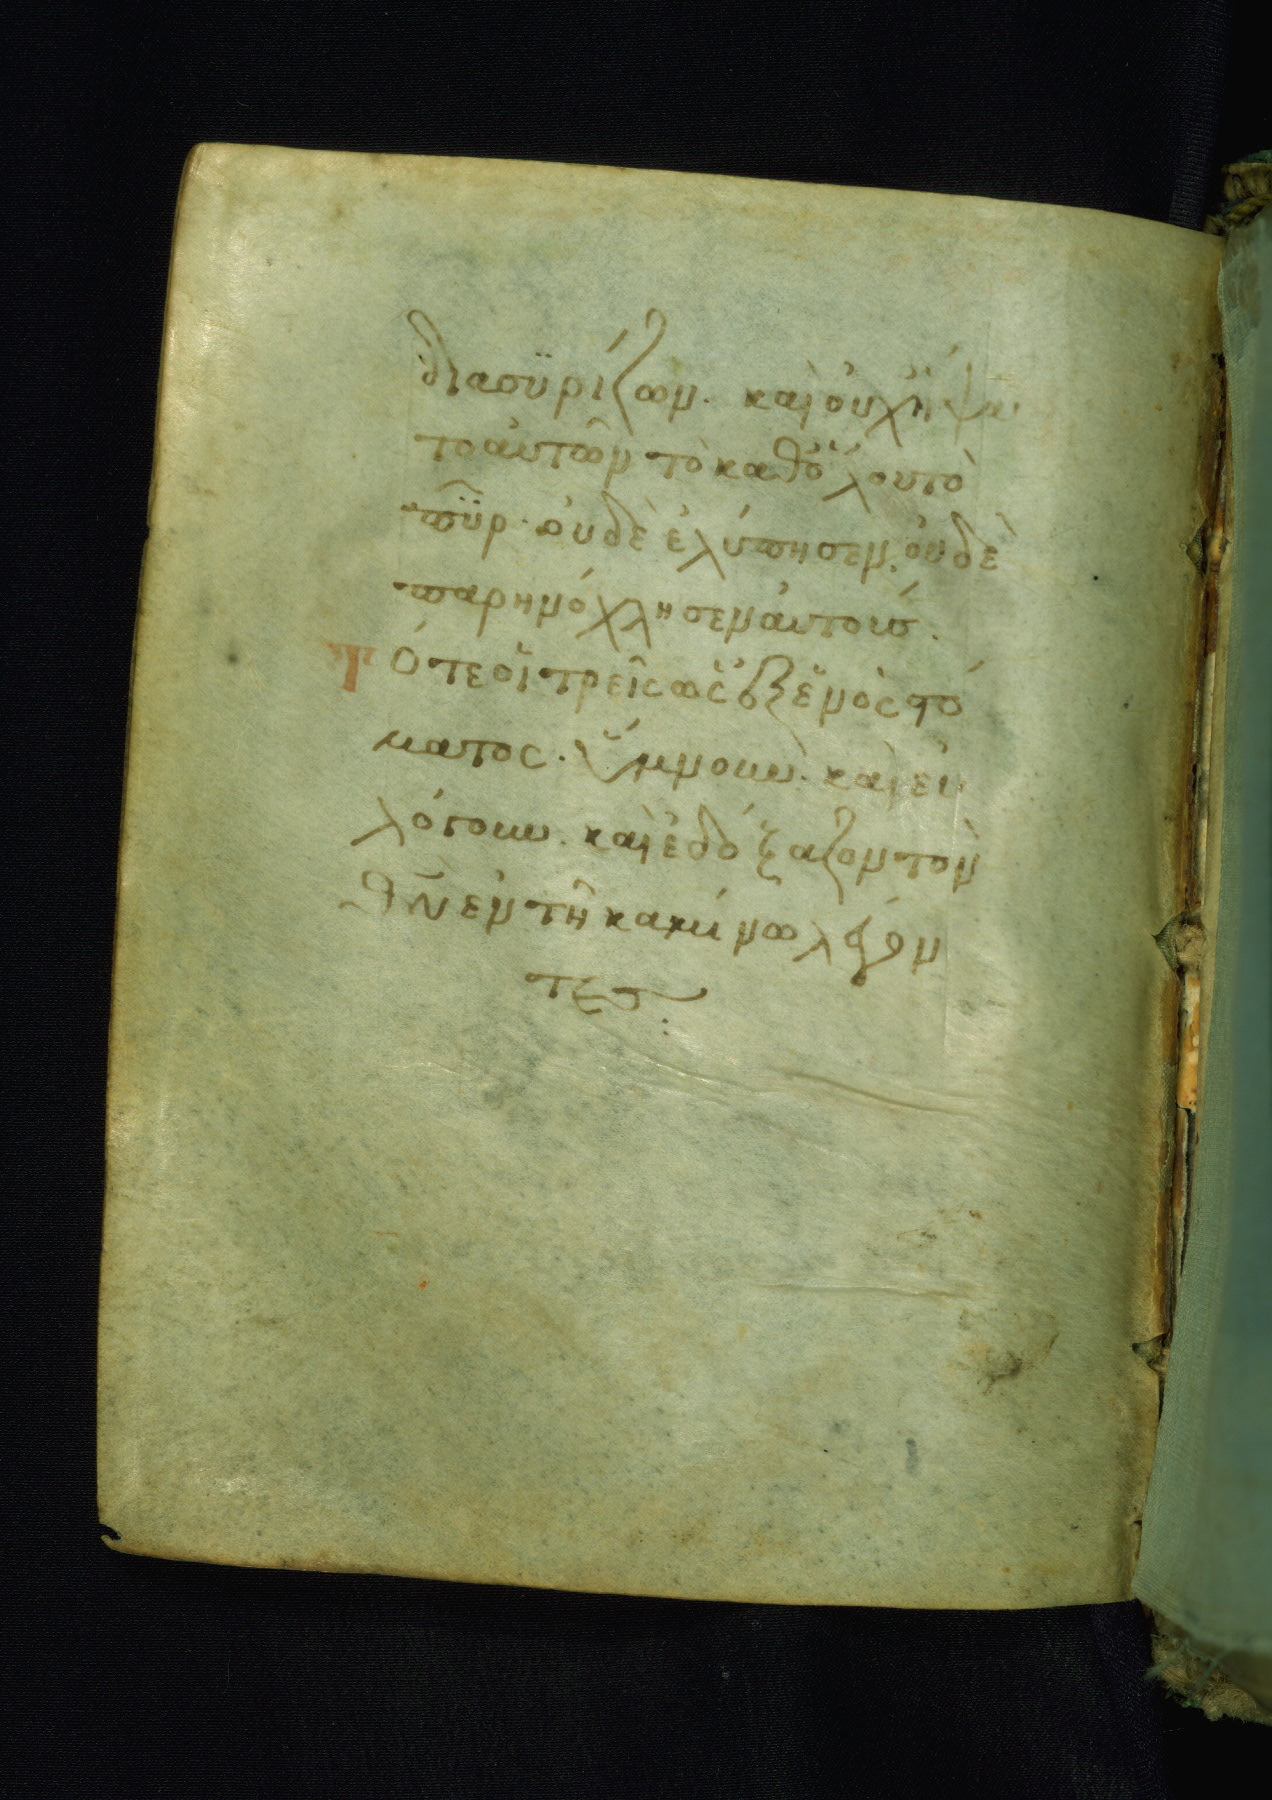 διασϋρίζον. καὶ οὐχ ἥψα
το αὐτῶν τὸ καθόλου τὸ
πῦρ. οὐδὲ ἐλύπησεν. οὐδὲ
παρηνόχλησεν αὐτοῖς.
Τότε οἱ τρεῖς ὡς ἐξ ἑνὸς στό
ματος. ὕμνουν. καὶ εὐ
λόγουν. καὶ ἐδόξαζον τὸν
θν ἐν τῆ καμίνω λέγον
τες